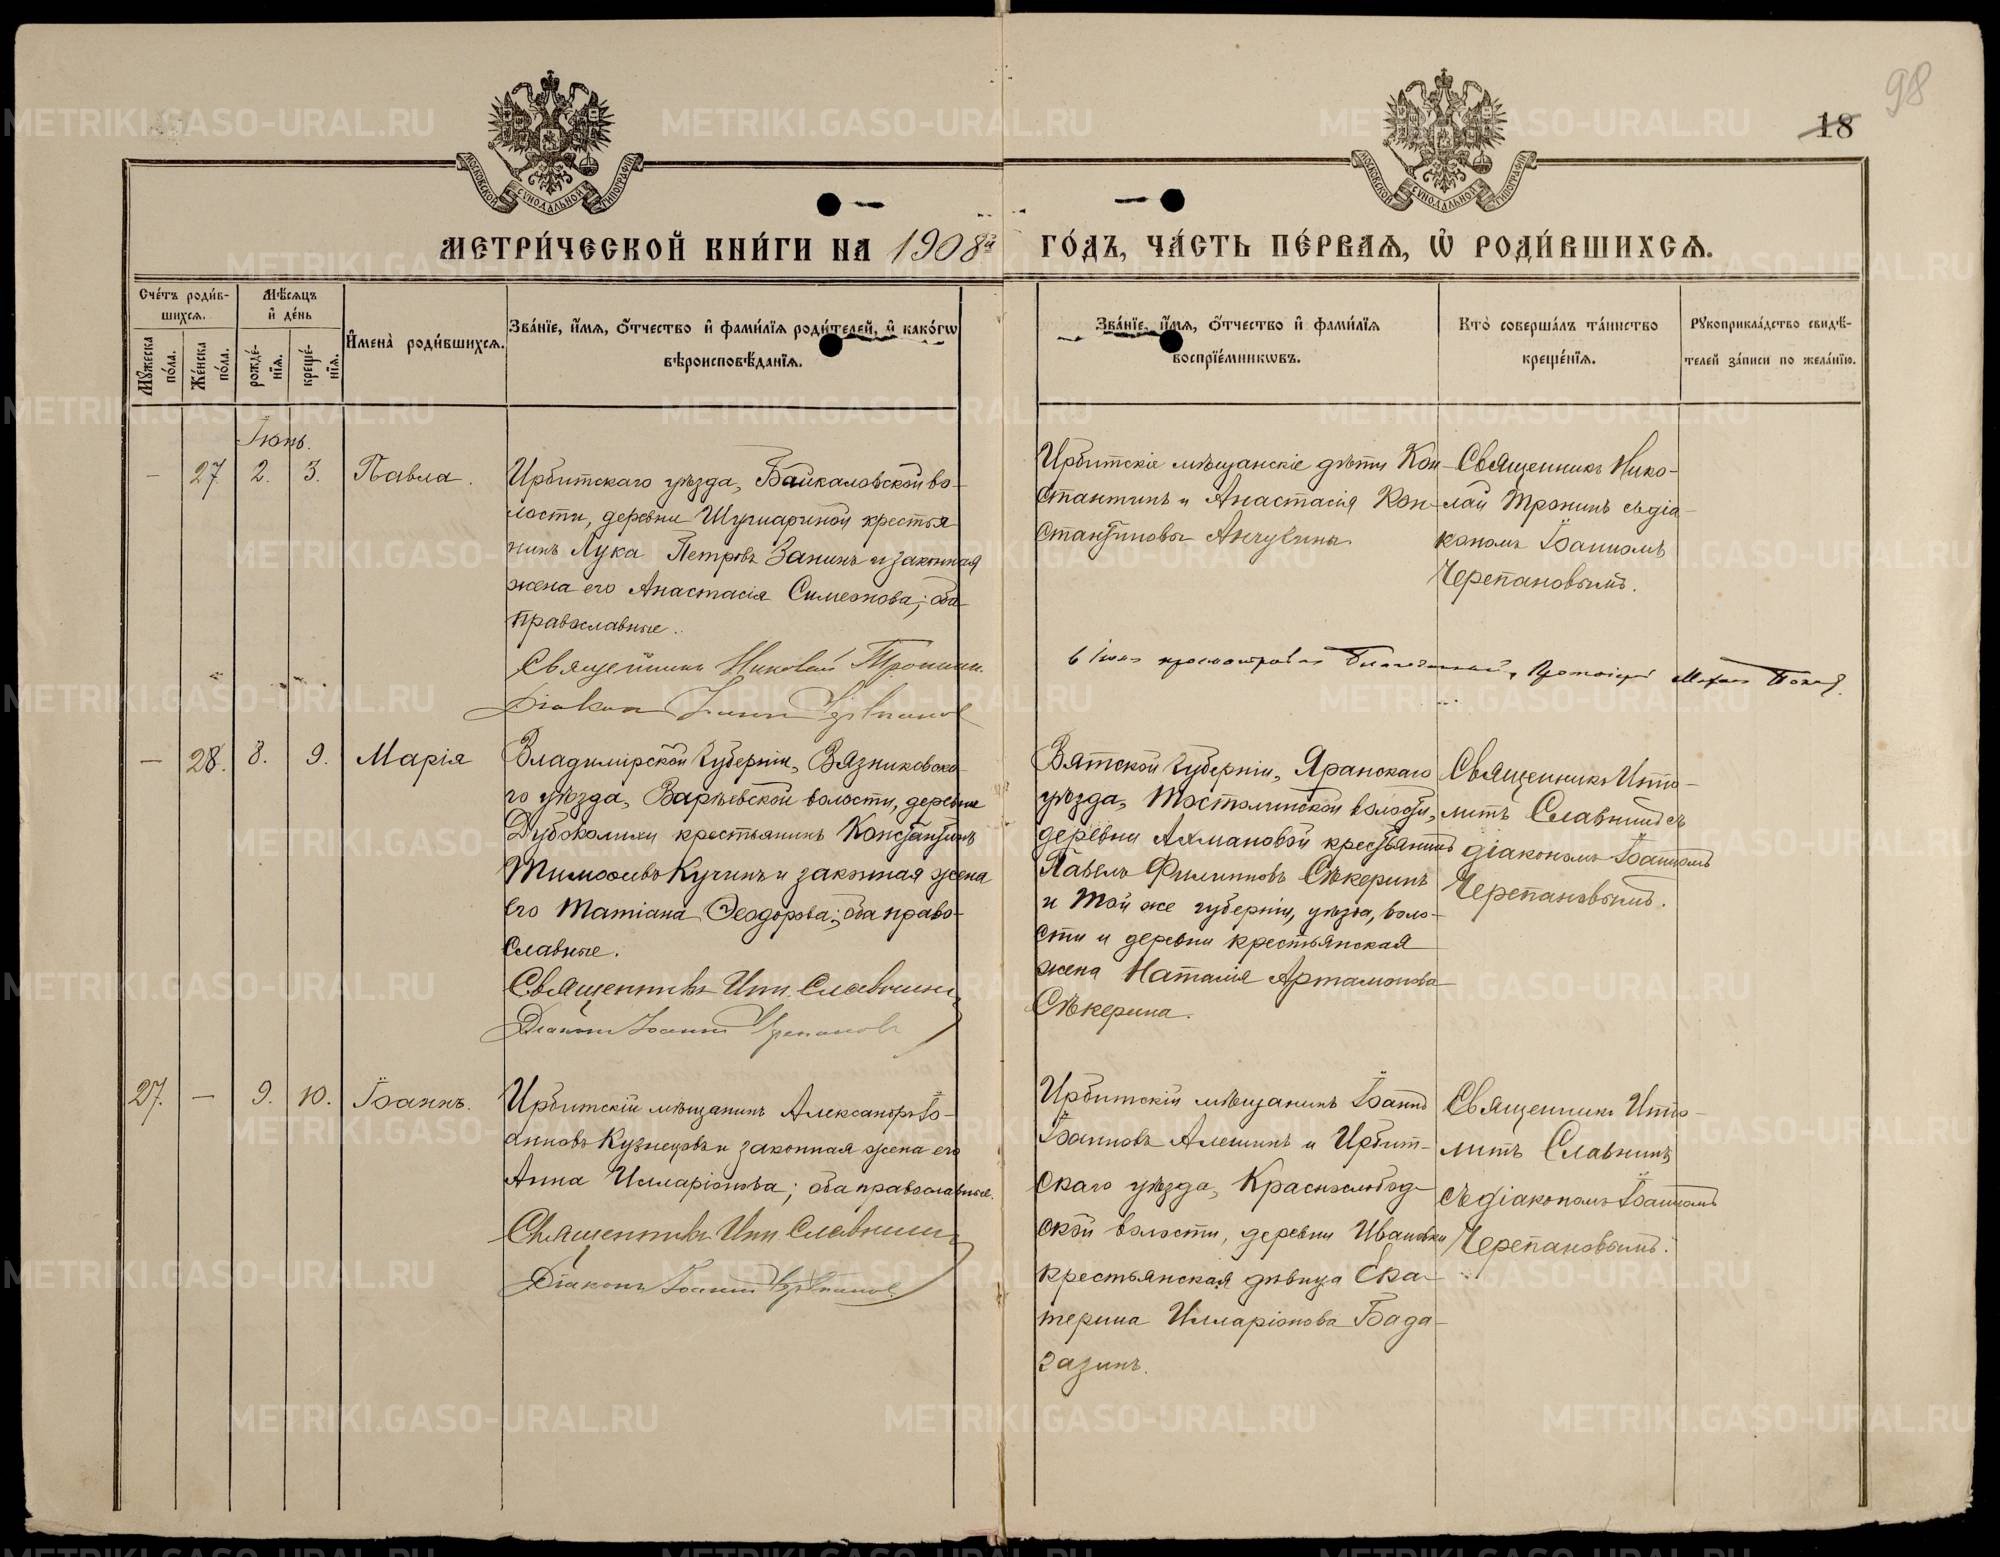 98
18
МОСКОВСКОЙ СѴНОДАЛЬНОЙ ТИПОГРАФІИ
МОСКОВСКОЙ СѴНОДАЛЬНОЙ ТИПОГРАФІИ
МЕТРИ́ЧЕСКОЙ КНИ́ГИ НА 1908й ГО́ДЪ, ЧА́СТЬ ПЕ́РВАѦ, Ѿ РОДИ́ВШИХСѦ.
Сче́тъ роди́в-
шихсѧ.
Мꙋжеска по́ла.
Же́нска по́ла.
Мѣ́сѧцъ
и҆ де́нь
рожде́-
нїѧ.
креще́-
нїѧ.
И҆мена̀ роди́вшихсѧ.
Зва́нїе, и҆́мѧ, ѻ҆́тчество и҆ фами́лїѧ роди́телей, и҆ како́гѡ
вѣроисповѣ́данїѧ.
Зва́нїе, и҆́мѧ, ѻ҆́тчество и҆ фами́лїѧ
воспрїе́мникѡвъ.
Кто̀ соверша́лъ та́инство
креще́нїѧ.
Рꙋкоприкла́дство свидѣ́-
телей за́писи по жела́нїю.
Іюнь.
— 27 2. 3. Павла.
Ирбитскаго уѣзда, Байкаловской во-
лости, деревни Шушариной крестья
нинъ Лука Петровъ Занинъ и законная
жена его Анастасія Симеонова; оба
православные.
Священникъ Николай Тронинъ.
Діаконъ Іоаннъ Черепановъ
Ирбитскіе мѣщанскіе дѣти Кон-
стантинъ и Анастасія Кон-
стантиновы Анчугины.
Священникъ Нико-
лай Тронинъ съ діа-
кономъ Іоанномъ
Черепановымъ.
просмотрѣлъ Благочинный, Протоіерей
— 28. 8. 9. Марія
Владимірской губерніи, Вязниковска-
го уѣзда, Варѣевской волости, деревни
крестьянинъ Константинъ
Тимоѳеевъ Кучинъ и законная жена
его Татіана Ѳеодорова; оба право-
славные.
Священникъ Ипп. Славнинъ
Діаконъ Іоаннъ Черепановъ
Вятской губерніи, Яранскаго
уѣзда, волости,
деревни Ахмановой крестьянинъ
Павелъ Филипповъ Сѣкеринъ
и той же губерніи, уѣзда, воло-
сти и деревни крестьянская
жена Наталія Артамонова
Сѣкерина.
Священникъ Иппо-
литъ Славнинъ съ
діакономъ Іоанномъ
Черепановымъ.
27. — 9. 10. Іоаннъ.
Ирбитскій мѣщанинъ Александръ Іо-
анновъ Кузнецовъ и законная жена его
Анна Илларіонова; оба православные.
Священникъ Ипп. Славнинъ
Діаконъ Іоаннъ Черепановъ
Ирбитскій мѣщанинъ Іоаннъ
Іоанновъ Алешинъ и Ирбит-
скаго уѣзда, Краснослобод-
ской волости, деревни Ивановки
крестьянская дѣвица Ека-
терина Илларіонова Бада-
газинъ.
Священникъ Иппо-
литъ Славнинъ
съ діакономъ Іоанномъ
Черепановымъ.
METRIKI.GASO-URAL.RU